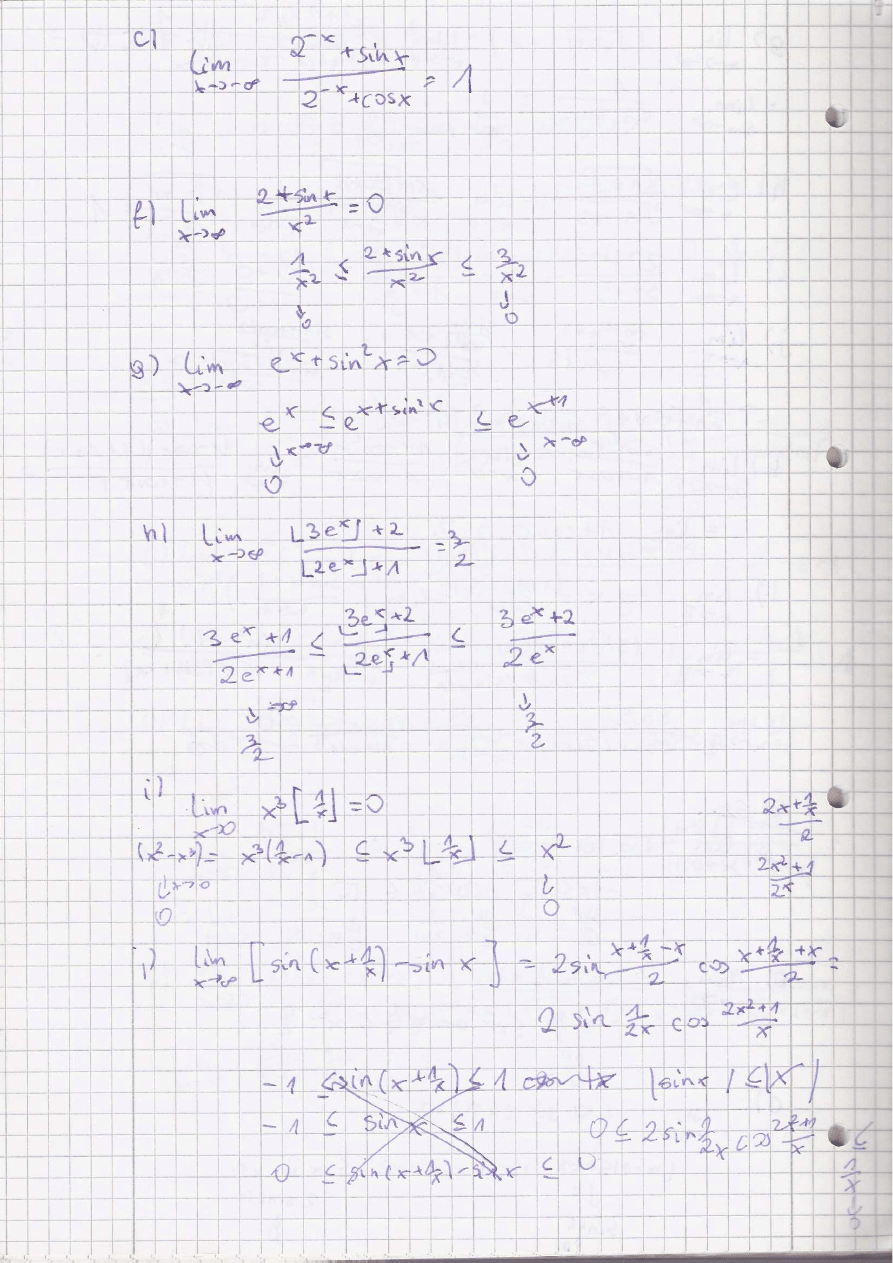 c) lim x→-∞ (2^-x + sin x)/(2^-x + cos x) = 1
f) lim x→∞ (2+sin x)/x² = 0
1/x² ≤ (2+sin x)/x² ≤ 3/x²
↓ 0 ↓ 0
g) lim x→-∞ e^x + sin² x = 0
e^x ≤ e^(x+sin² x) ≤ e^(x+1)
↓ x→-∞ ↓ x-∞
0 0
h) lim x→∞ (⌊3e^x⌋ + 2)/(⌊2e^x⌋ + 1) = 3/2
(3e^x + 1)/(2e^x + 1) ≤ (⌊3e^x⌋ + 2)/(⌊2e^x⌋ + 1) ≤ (3e^x + 2)/(2e^x)
↓ →∞ ↓
3/2 3/2
i) lim x→0 x³ ⌊1/x⌋ = 0
(2x + 1/x)/2
(x² - x³) = x³(1/x - 1) ≤ x³ ⌊1/x⌋ ≤ x²
(2x² + 1)/2x
↓ x→0 ↓
0 0
j) lim x→∞ [sin(x + 1/x) - sin x] = 2 sin (x + 1/x - x)/2 cos (x + 1/x + x)/2 =
2 sin 1/2x cos (2x² + 1)/x
-1 ≤ sin(x + 1/x) ≤ 1 |sin x| ≤ |x|
-1 ≤ sin x ≤ 1 0 ≤ 2 sin 1/2x cos
0 ≤ sin(x + 1/x) - sin x ≤ 0